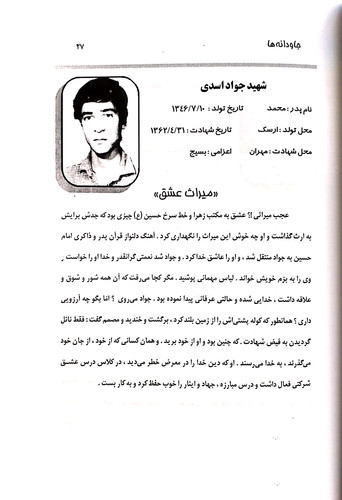 جاودانه‌ها
۲۷
شهید جواد اسدی
نام پدر : محمد تاریخ تولد : ۱۳۴۶/۷/۱۰
محل تولد : ارسک تاریخ شهادت : ۱۳۶۲/۴/۳۱
محل شهادت : مهران اعزامی : بسیج
«میراث عشق»
عجب میراثی !؟ عشق به مکتب زهرا و خط سرخ حسین (ع) چیزی بود که جدش برایش
به ارث گذاشت و او چه خوش این میراث را نگهداری کرد . آهنگ دلنواز قرآن پدر و ذاکری امام
حسین به جواد منتقل شد ، و او را عاشق خدا کرد . و جواد شد نعمتی گرانقدر و خدا او را خواست ,
وی را به بزم خویش خواند . لباس مهمانی پوشید . مگر کجا می‌رفت که آن همه شور و شوق و
علاقه داشت ، خدایی شده و حالتی عرفانی پیدا نموده بود . جواد می‌روی ؟ اما بگو چه آرزویی
داری ؟ همانطور که کوله پشتی‌اش را از زمین بلند کرد ، برگشت و خندید و مصمم گفت : فقط نائل
گردیدن به فیض شهادت . که چنین بود و او از خود برید . و همان کسانی که از خود ، از جان خود
می‌گذرند ، به خدا می‌رسند . او که دین خدا را در معرض خطر می‌دید ، در کلاس درس عشق
شرکتی فعال داشت و درس مبارزه ، جهاد و ایثار را خوب حفظ کرد و به کار بست .